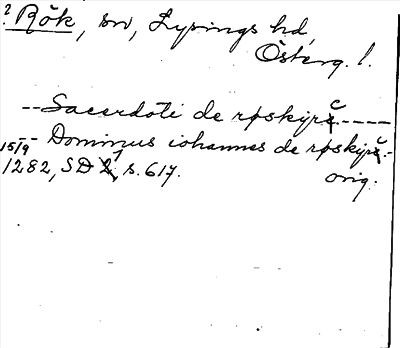 ? Rök, sn, Lysings hd,
Österg. l.
-- Sacerdoti de røskyrč -----
-- Dominus iohannes de røskyrč.-
15/9 1282, SD 1, s. 617. orig.